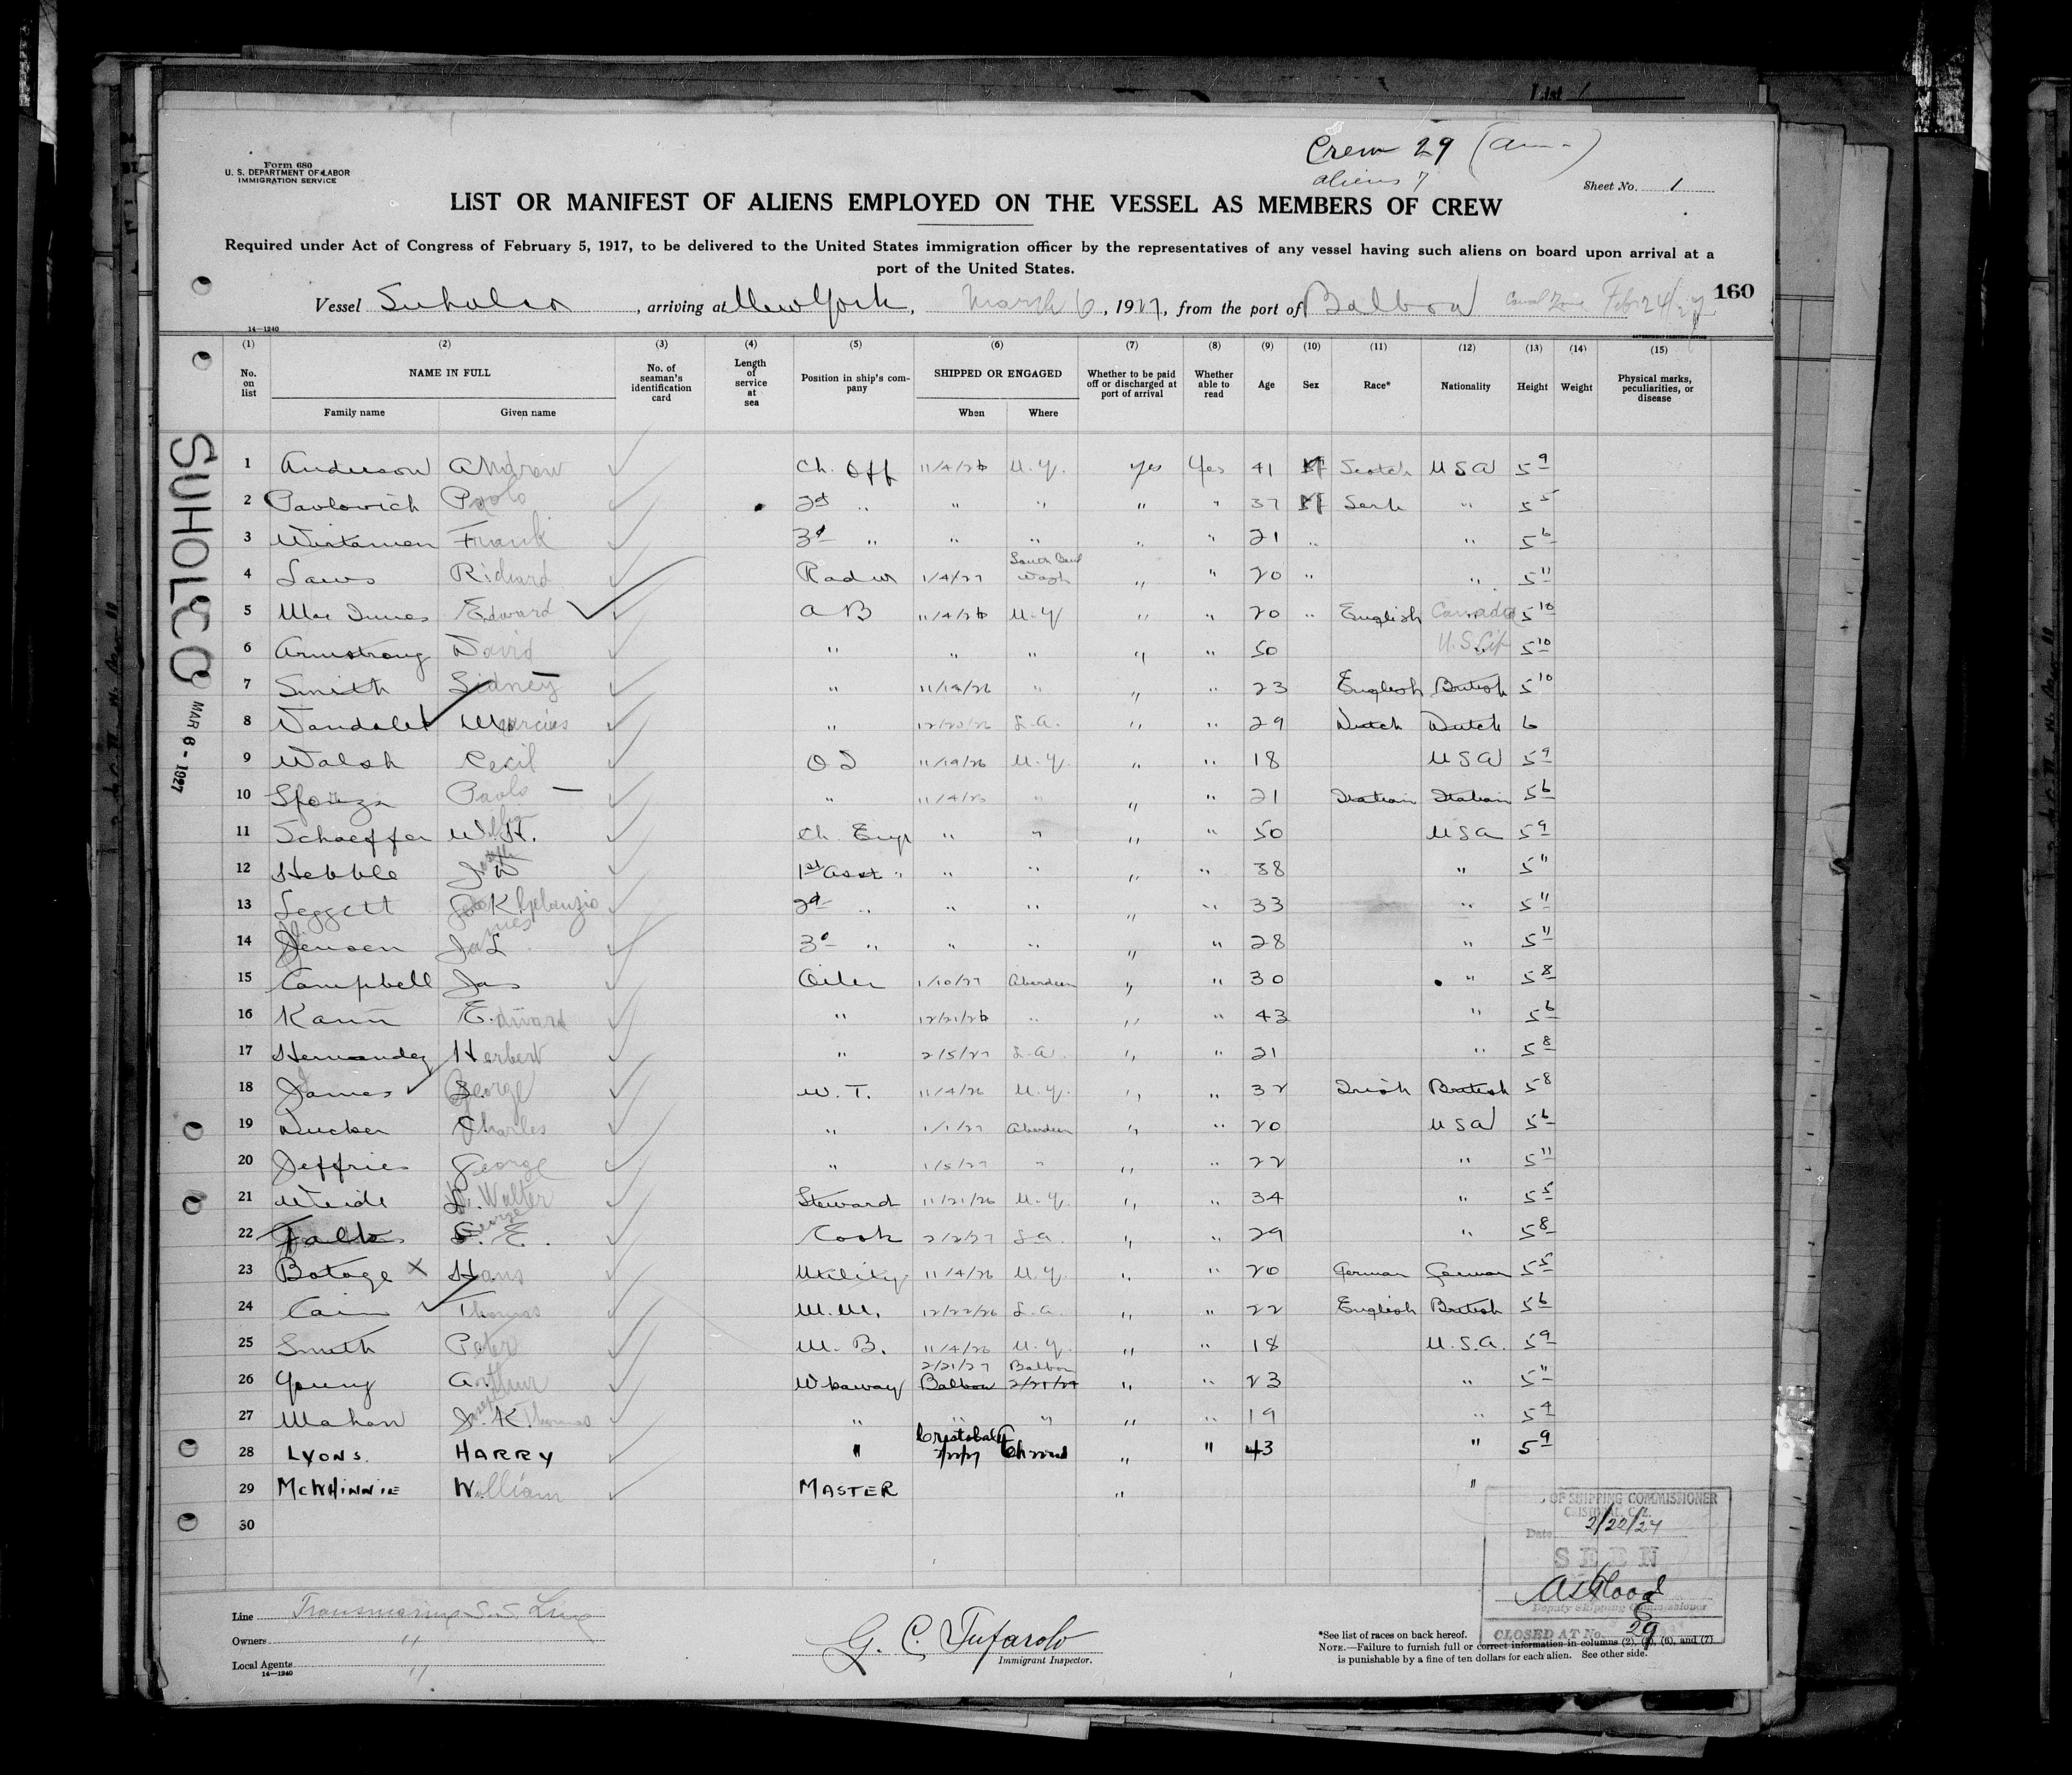 List 1
Crew 29
aliens 7
Form 680
U. S. DEPARTMENT OF LABOR
IMMIGRATION SERVICE
Sheet No. 1
LIST OR MANIFEST OF ALIENS EMPLOYED ON THE VESSEL AS MEMBERS OF CREW
Required under Act of Congress of February 5, 1917, to be delivered to the United States immigration officer by the representatives of any vessel having such aliens on board upon arrival at a
port of the United States.
Vessel Suholco, arriving at New York, March 6, 1927, from the port of Balboa Canal Zone Feb 24/27 160
14—1240
(1) (2) (3) (4) (5) (6) (7) (8) (9) (10) (11) (12) (13) (14) (15)
No. on list NAME IN FULL No. of seaman's identification card Length of service at sea Position in ship's company SHIPPED OR ENGAGED Whether to be paid off or discharged at port of arrival Whether able to read Age Sex Race* Nationality Height Weight Physical marks, peculiarities, or disease
Family name Given name When Where
SUHOLCO MAR 6 - 1927
1 Anderson Andrew Ch. Off 11/4/26 N.Y. Yes Yes 41 M Scotch USA 5 9
2 Pavlovich Paolo 2d " " " " " 37 M Serb " 5 5
3 Frank 3d " " " " " 21 " " 5 6
4 Laws Richard Radio 1/4/27 South Bend Wash " " 20 " " 5 11
5 Mac Innes Edward AB 11/4/26 N.Y " " 20 " English Canada 5 10
6 Armstrong David " " " " " 50 U.S. Cit 5 10
7 Smith Sidney " 11/19/26 " " " 23 English British 5 10
8 Marcius " 12/20/26 S.A. " " 29 Dutch Dutch 6
9 Walsh Cecil OS 11/19/26 N.Y. " " 18 USA 5 9
10 Sforza Paolo " 11/4/26 " " " 21 Italian Italian 5 6
11 Schaeffer W.H. Ch. Eng " " " " 50 USA 5 9
12 Hebble Joseph 1st Asst " " " " " 38 " 5 11
13 Leggett K. 2d " " " " " 33 " 5 11
14 Jensen Jas L 3d " " " " " 28 " 5 11
15 Campbell Jas Oiler 1/10/27 Aberdeen " " 30 " 5 8
16 Kann Edward " 12/21/26 " " " 43 " 5 6
17 Hernandez Herbert " 2/5/27 S.A. " " 21 " 5 8
18 James George W.T. 11/4/26 N.Y. " " 32 Irish British 5 8
19 Charles " 1/1/27 Aberdeen " 20 USA 5 6
20 Jeffries George " 1/5/27 " " " 22 " 5 11
21 Weide Walter Steward 11/21/26 N.Y. " " 34 " 5 5
22 Falk George E. Cook 2/2/27 S.A. " " 29 " 5 8
23 Botage X Hans Utility 11/4/26 N.Y. " " 20 German German 5 5
24 Cain Thomas M.M. 12/22/26 S.A. " " 22 English British 5 6
25 Smith Peter M.B. 11/4/26 N.Y. " " 18 U.S.A. 5 9
26 Young Arthur Wkaway 2/21/27 Balboa " " 23 " 5 11
27 Mahan J.K. Thomas " " " " " 19 " 5 9
28 LYONS. HARRY " Cristobal " " 43 " 5 9
29 McWHINNIE William MASTER " "
30
OF SHIPPING COMMISSIONER
CRISTOBAL, C.Z.
Date 2/22/27
SEEN
Deputy Shipping Commissioner
CLOSED AT No. 29
Line Transmarine S.S. Line
Owners "
Local Agents "
14—1240
G. C. Tufarolo
Immigrant Inspector.
*See list of races on back hereof.
NOTE.—Failure to furnish full or correct information in columns (2), (5), (6), and (7)
is punishable by a fine of ten dollars for each alien. See other side.